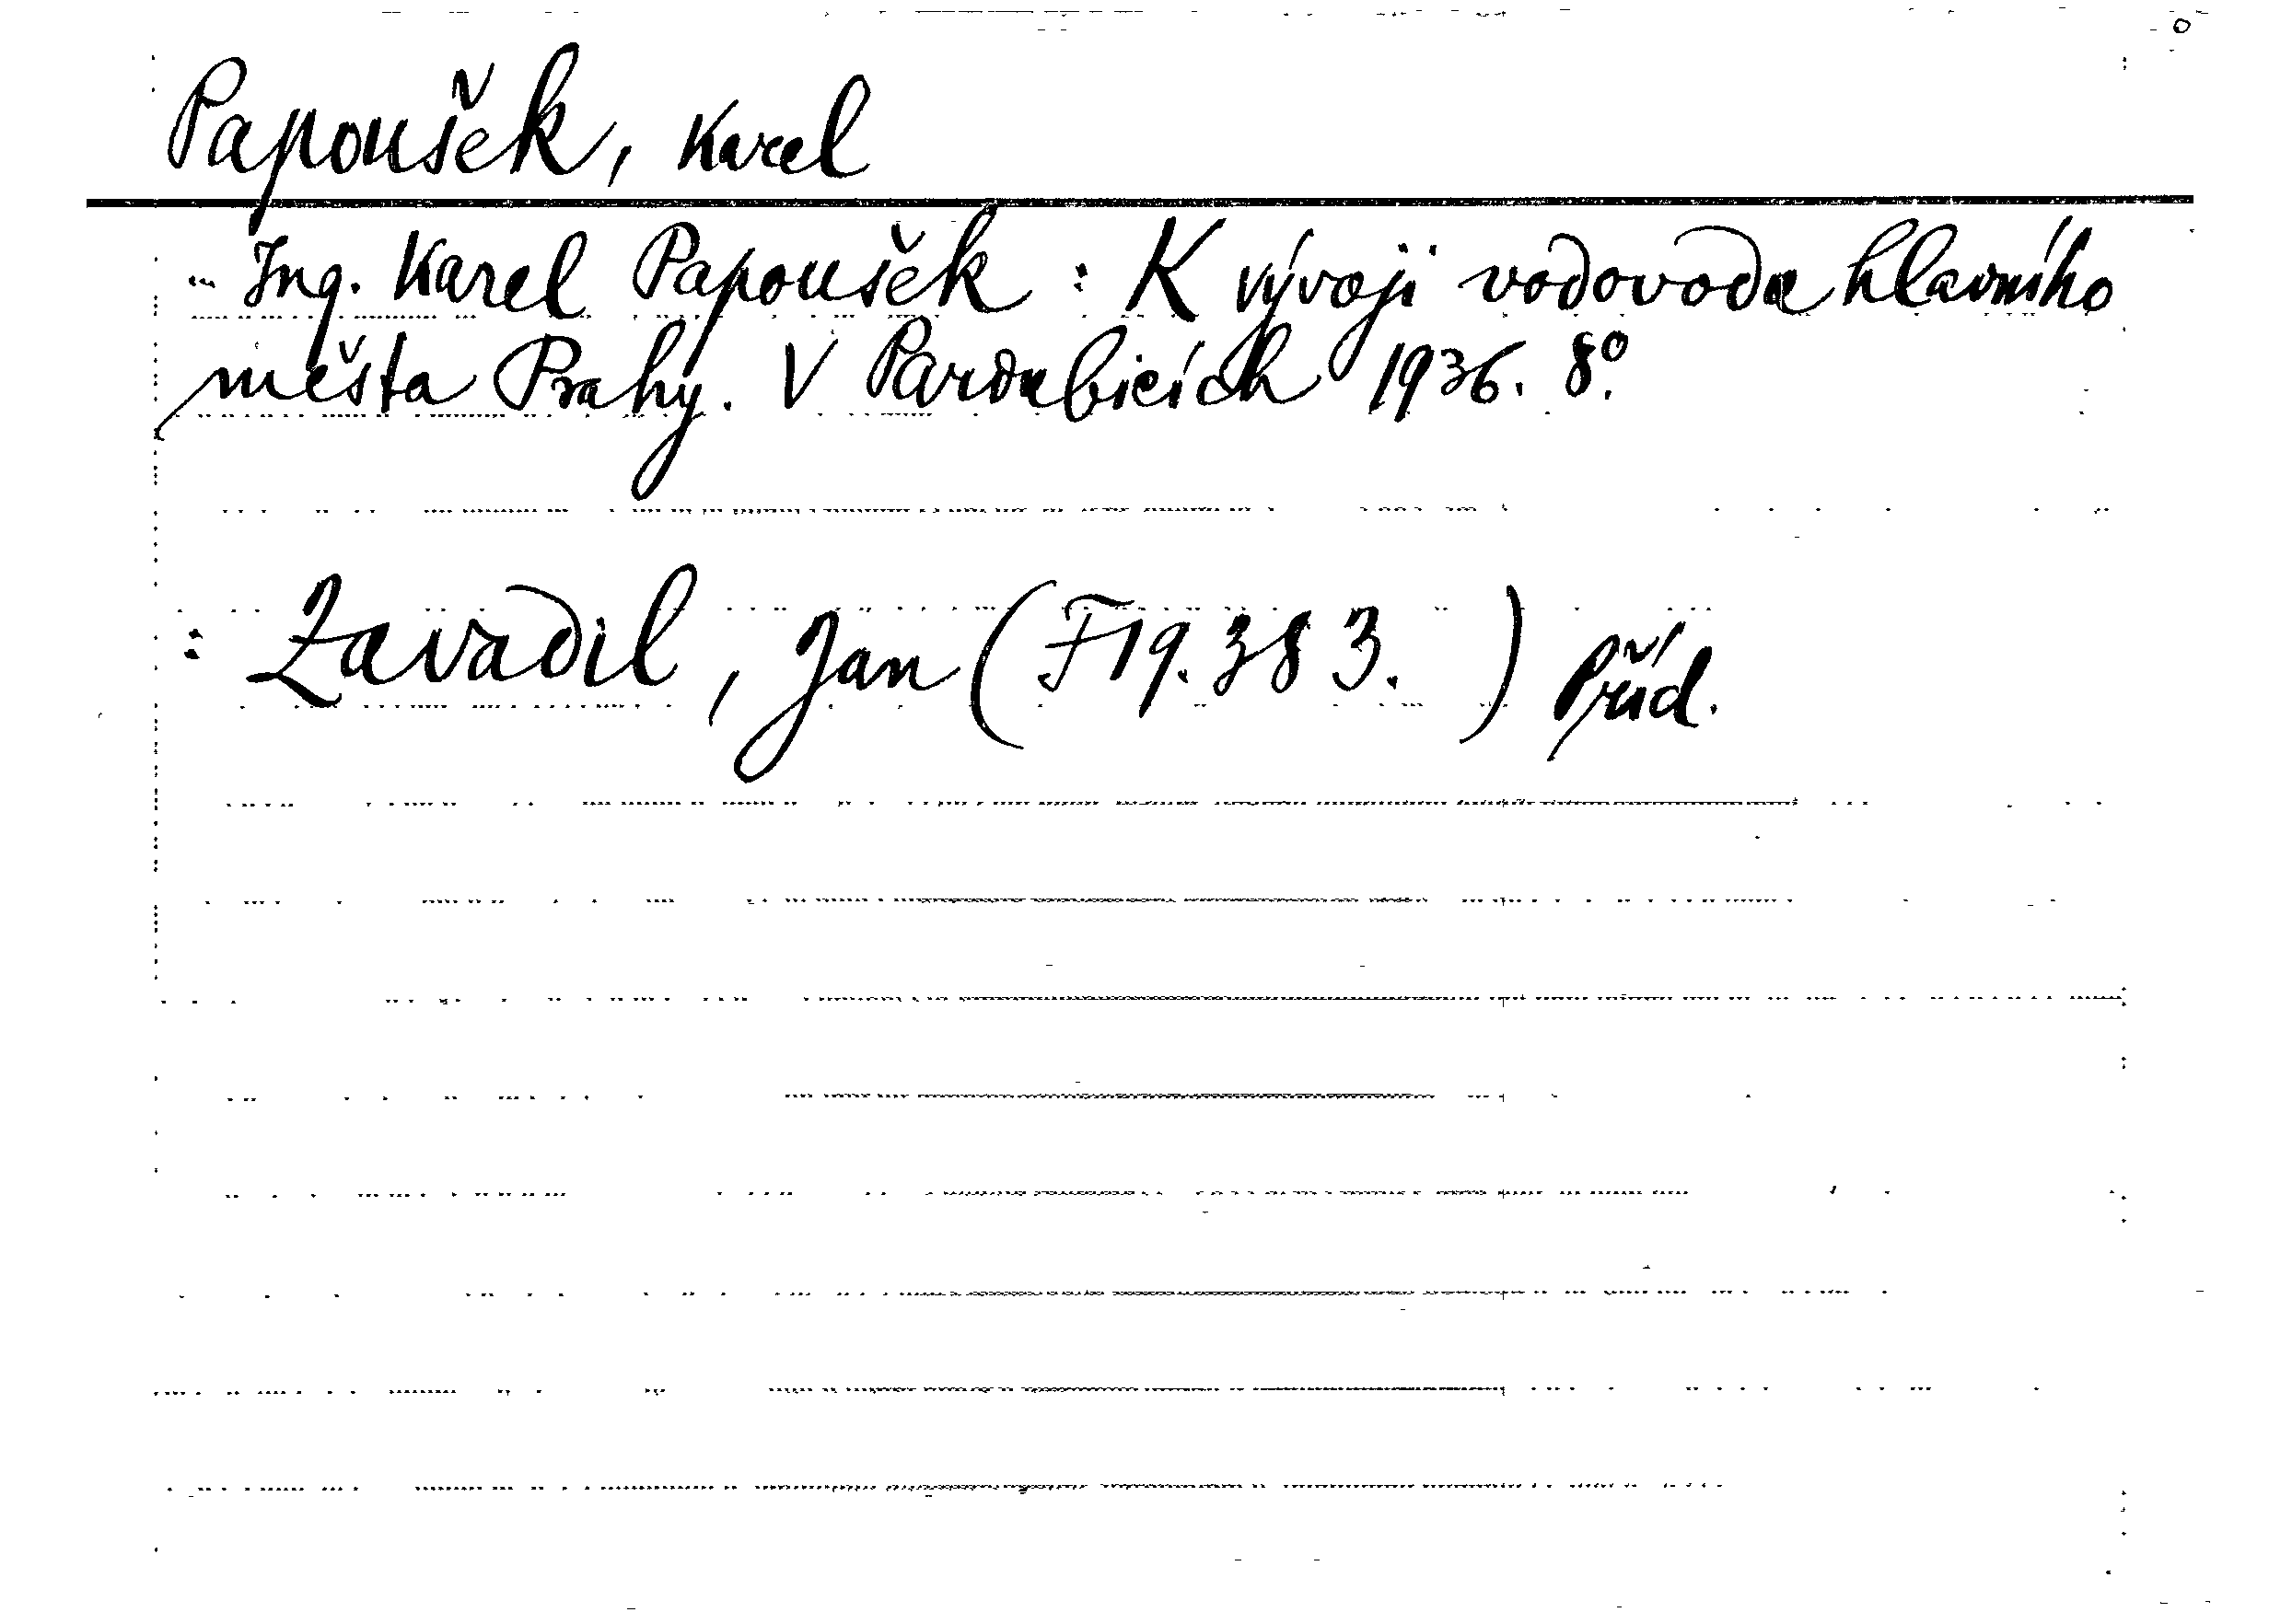 Papoušek, Karel
Ing. Karel Papoušek : K vývoji vodovodu hlavního
města Prahy. V Pardubicích 1936. 8°.
: Zavadil, Jan (F19.383. ) Příd.